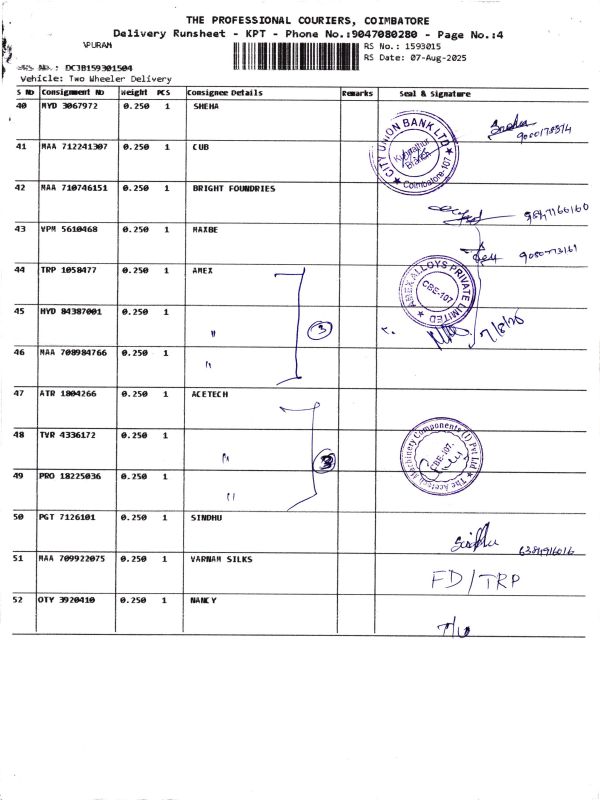 THE PROFESSIONAL COURIERS, COIMBATORE
Delivery Runsheet - KPT - Phone No.:9047080280 - Page No.:4
VPURAM
RS No.: 1593015
RS Date: 07-Aug-2025
DCJB159301504
Vehicle: Two Wheeler Delivery
S No Consignment No Weight PCS Consignee Details Remarks Seal & Signature
40 MYD 3067972 0.250 1 SHEHA
9000178374
41 MAA 712241307 0.250 1 CUB
CITY UNION BANK LTD Branch Coimbatore-107
42 MAA 710746151 0.250 1 BRIGHT FOUNDRIES
43 VPM 5610468 0.250 1 MAXBE
44 TRP 1058477 0.250 1 AMEX
AMEX ALLOYS PRIVATE LIMITED CBE-107
45 HYD 84387001 0.250 1
" 3
7/8/25
46 MAA 708984766 0.250 1
"
47 ATR 1804266 0.250 1 ACETECH
48 TVR 4336172 0.250 1
" 3
The Acetech Machinery Components (I) Pvt Ltd CBE-107.
49 PRO 18225036 0.250 1
"
50 PGT 7126101 0.250 1 SINDHU
Sindhu
51 MAA 709922075 0.250 1 VARNAM SILKS
FD/TRP
52 OTY 3920410 0.250 1 NANCY